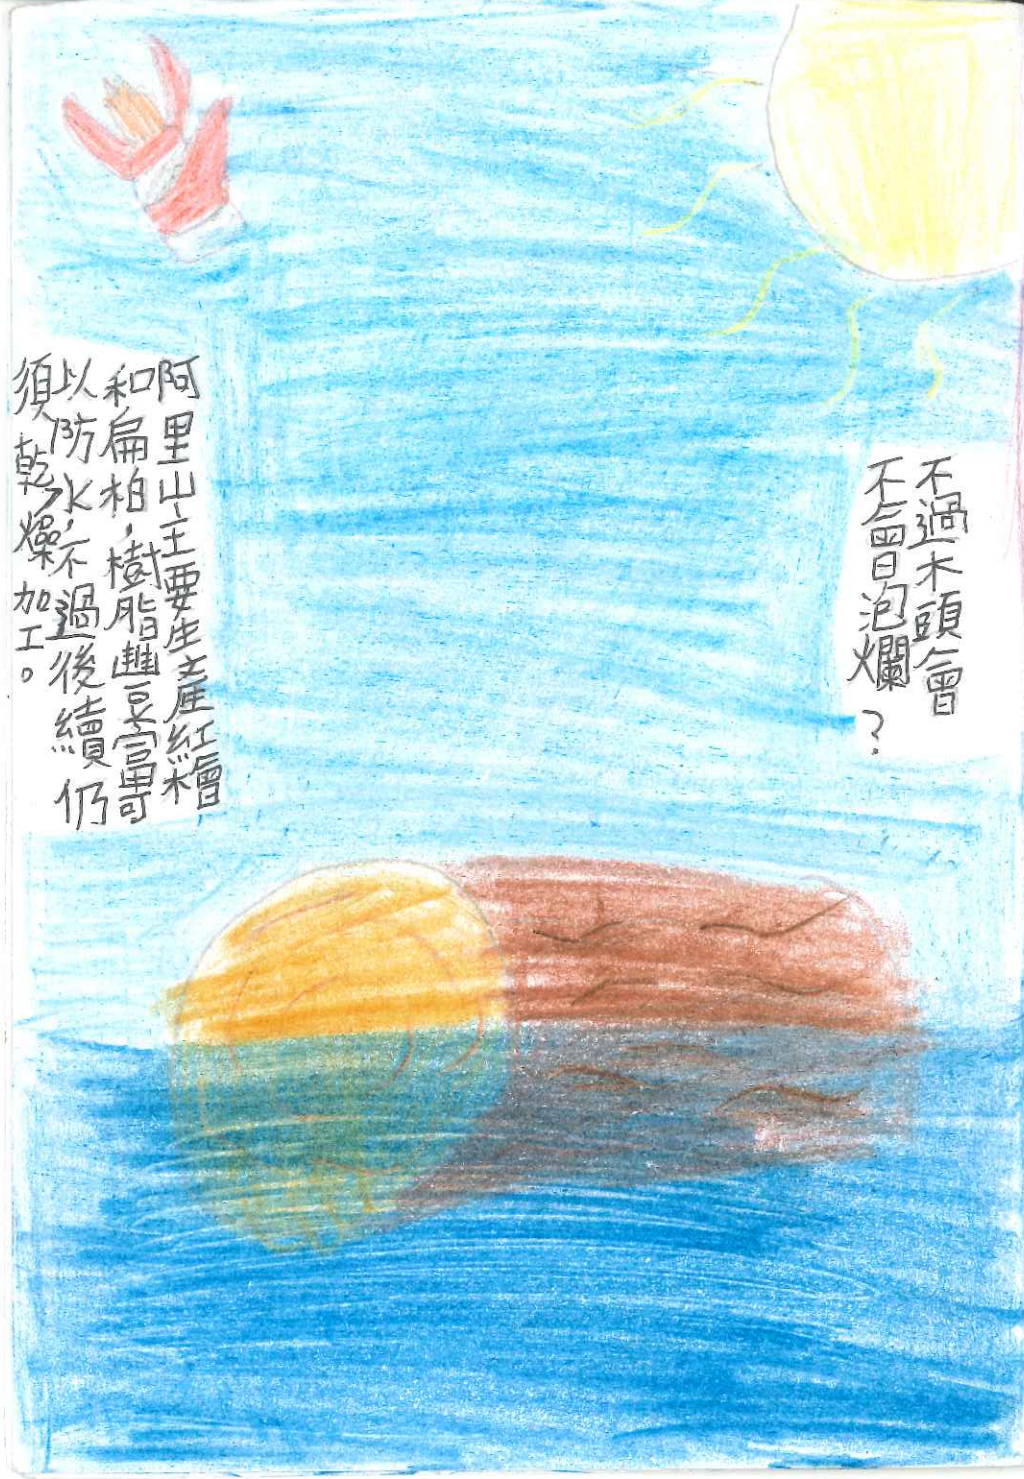 不過木頭會
不會泡爛?
阿里山主要生產紅檜
和扁柏,樹脂豐富可
以防水,不過後續仍
須乾燥加工。